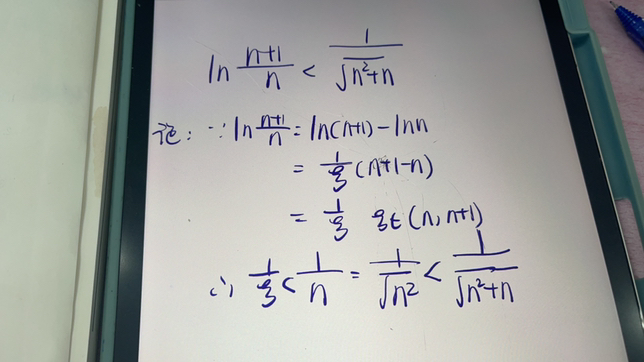 ln (n+1)/n < 1/√(n²+n)
记: ∵ ln (n+1)/n = ln(n+1) - ln n
= 1/ξ (n+1-n)
= 1/ξ ξ∈(n, n+1)
∴ 1/ξ < 1/n = 1/√n² < 1/√(n²+n)